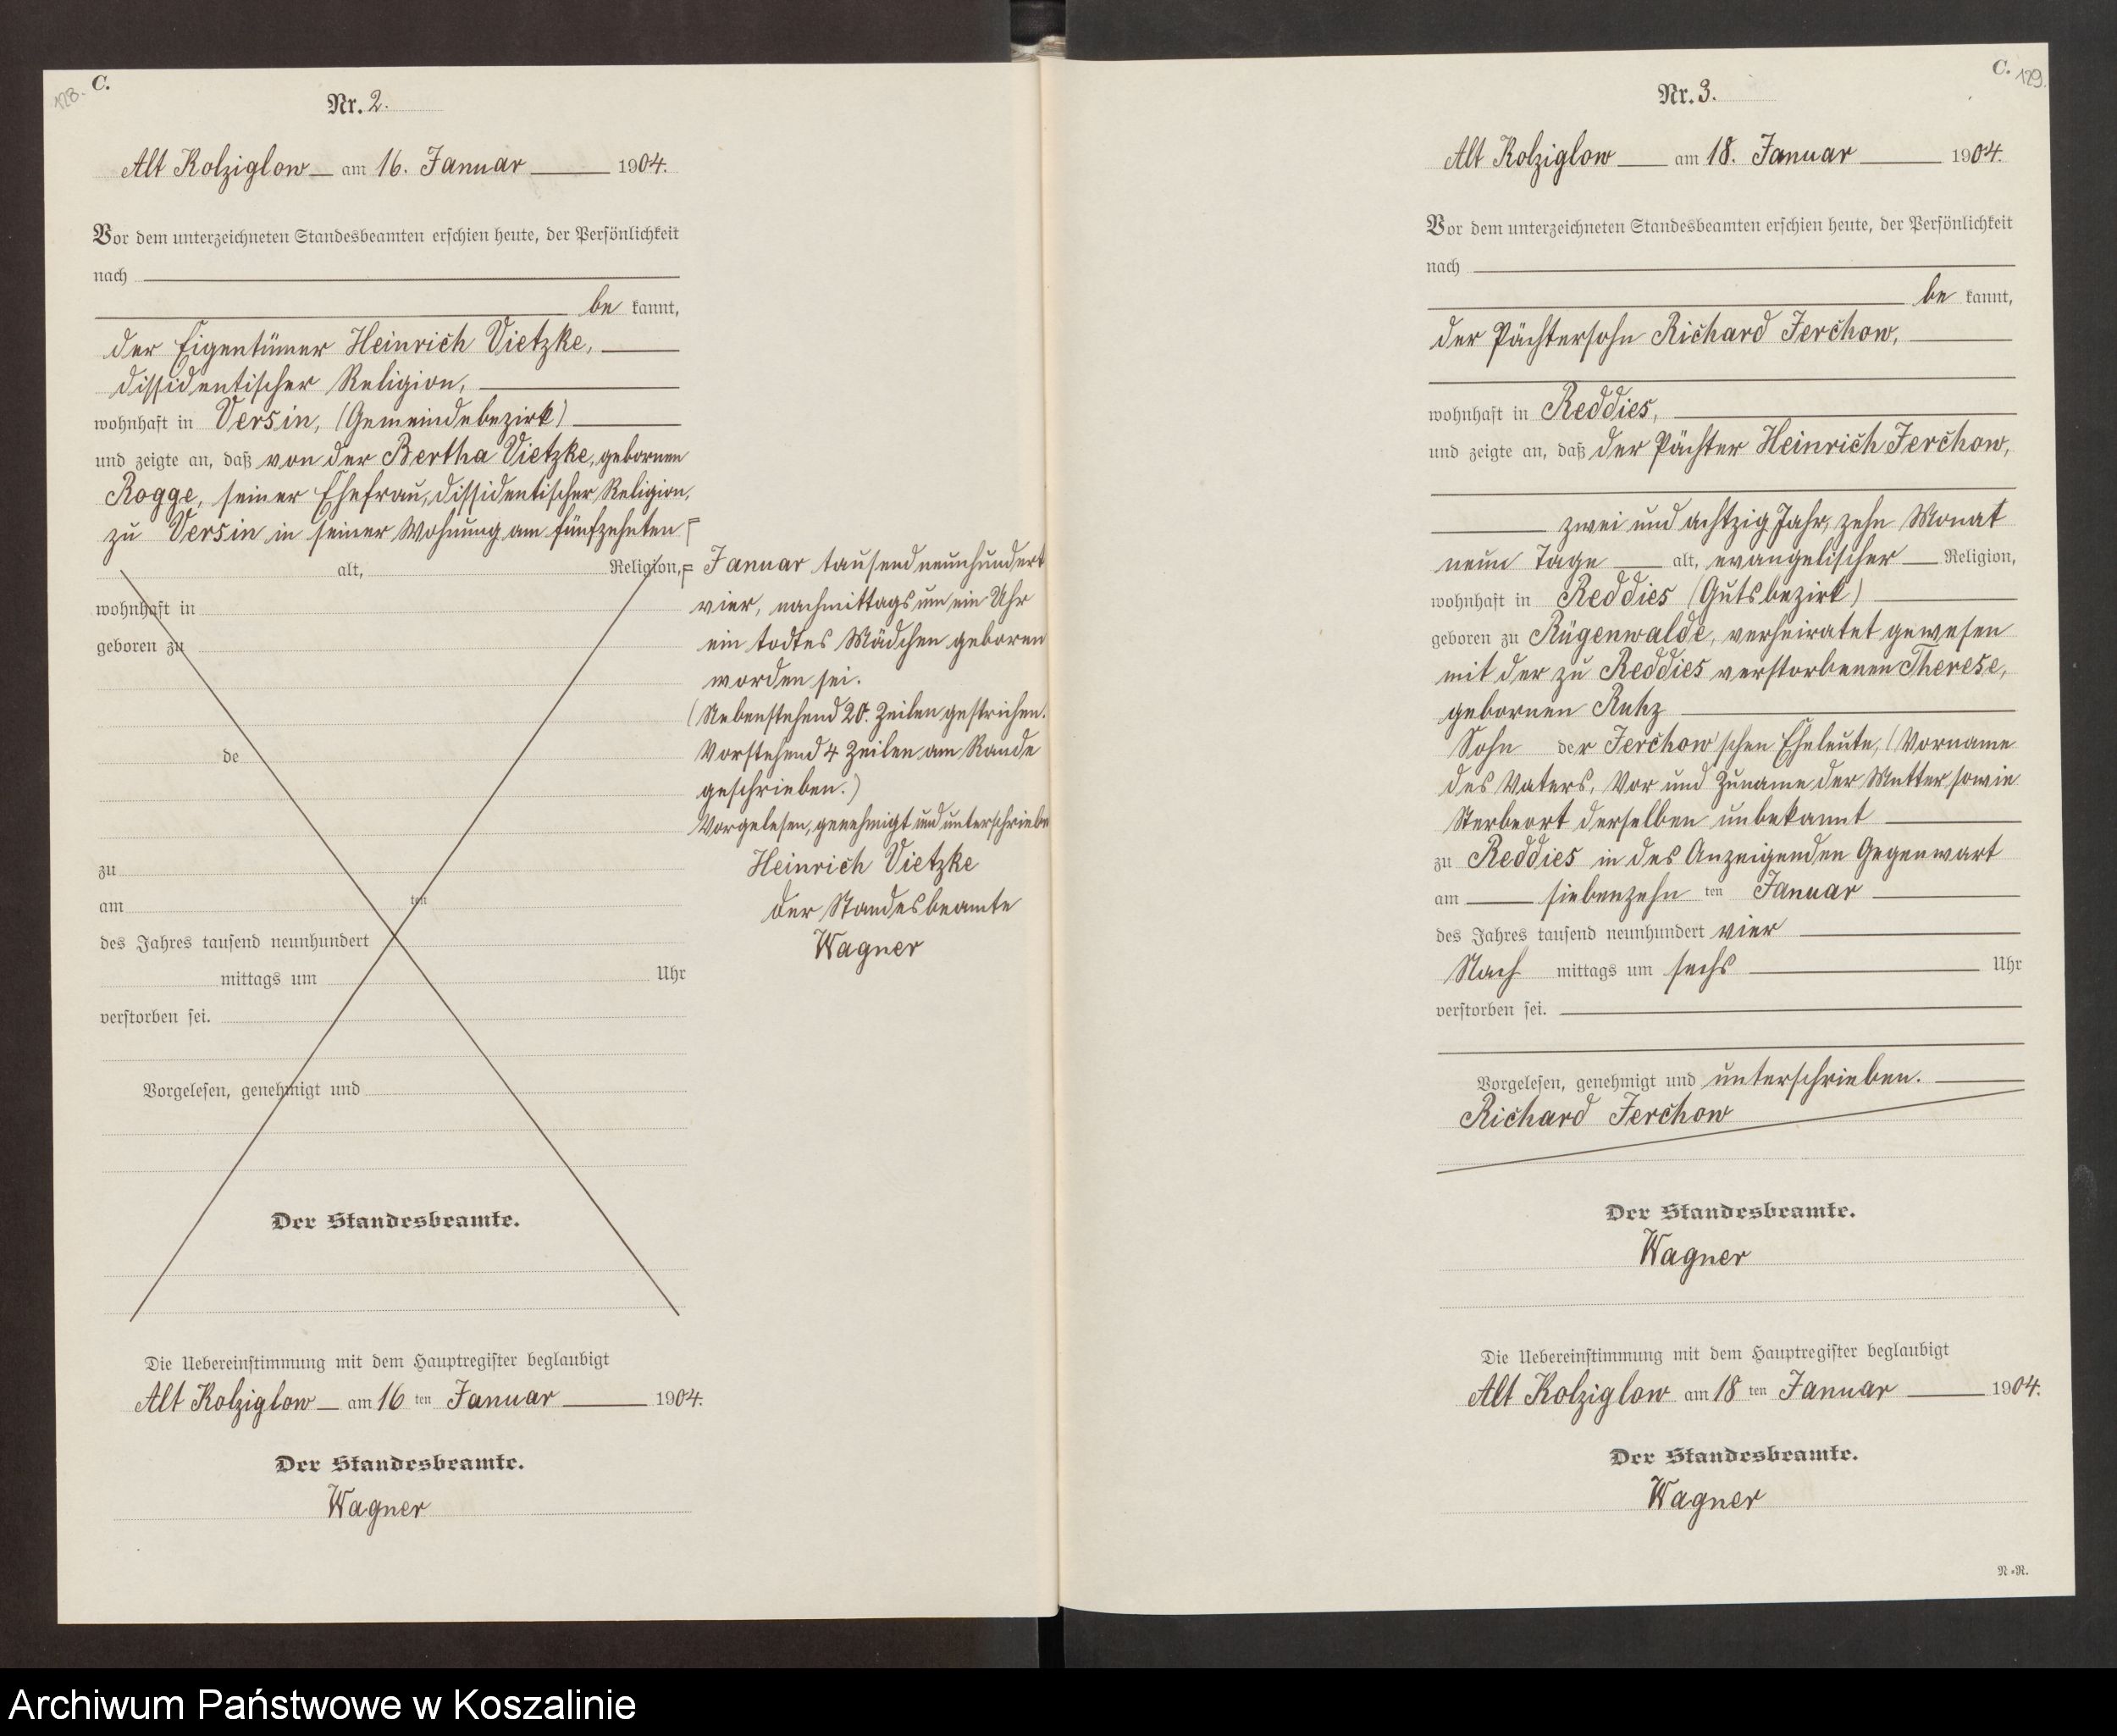 128.
C.
Nr. 2.
Alt Kolziglow am 16. Januar 1904.
Vor dem unterzeichneten Standesbeamten erschien heute, der Persönlichkeit
nach
be kannt,
der Eigentümer Heinrich Vietzke,
dissidentischer Religion,
wohnhaft in Versin, (Gemeindebezirk)
und zeigte an, daß von der Bertha Vietzke, gebornen
Rogge, seiner Ehefrau, dissidentischer Religion,
zu Versin in seiner Wohnung am fünfzehnten
alt, Religion,
wohnhaft in
geboren zu
de
zu
am ten
des Jahres tausend neunhundert
mittags um Uhr
verstorben sei.
Vorgelesen, genehmigt und
Der Standesbeamte.
Die Uebereinstimmung mit dem Hauptregister beglaubigt
Alt Kolziglow am 16 ten Januar 1904.
Der Standesbeamte.
Wagner
Januar tausend neunhundert
vier, nachmittags um ein Uhr
ein todtes Mädchen geboren
worden sei.
(Nebenstehend 20. Zeilen gestrichen.
Vorstehend 4 Zeilen am Rande
geschrieben.)
Vorgelesen, genehmigt und unterschrieben
Heinrich Vietzke
Der Standesbeamte
Wagner
C.
129.
Nr. 3.
Alt Kolziglow am 18. Januar 1904.
Vor dem unterzeichneten Standesbeamten erschien heute, der Persönlichkeit
nach
be kannt,
der Pächtersohn Richard Jerchow,
wohnhaft in Reddies,
und zeigte an, daß der Pächter Heinrich Jerchow,
zwei und achtzig Jahr, zehn Monat
neun Tage alt, evangelischer Religion,
wohnhaft in Reddies (Gutsbezirk)
geboren zu Rügenwalde, verheiratet gewesen
mit der zu Reddies verstorbenen Therese,
gebornen
Sohn der Jerchow'schen Eheleute, (Vorname
des Vaters, Vor und Zuname der Mutter sowie
Sterbeort derselben unbekannt
zu Reddies in des Anzeigenden Gegenwart
am siebenzehn ten Januar
des Jahres tausend neunhundert vier
Nach mittags um sechs Uhr
verstorben sei.
Vorgelesen, genehmigt und unterschrieben.
Richard Jerchow
Der Standesbeamte.
Wagner
Die Uebereinstimmung mit dem Hauptregister beglaubigt
Alt Kolziglow am 18 ten Januar 1904.
Der Standesbeamte.
Wagner
N.R.
Archiwum Państwowe w Koszalinie